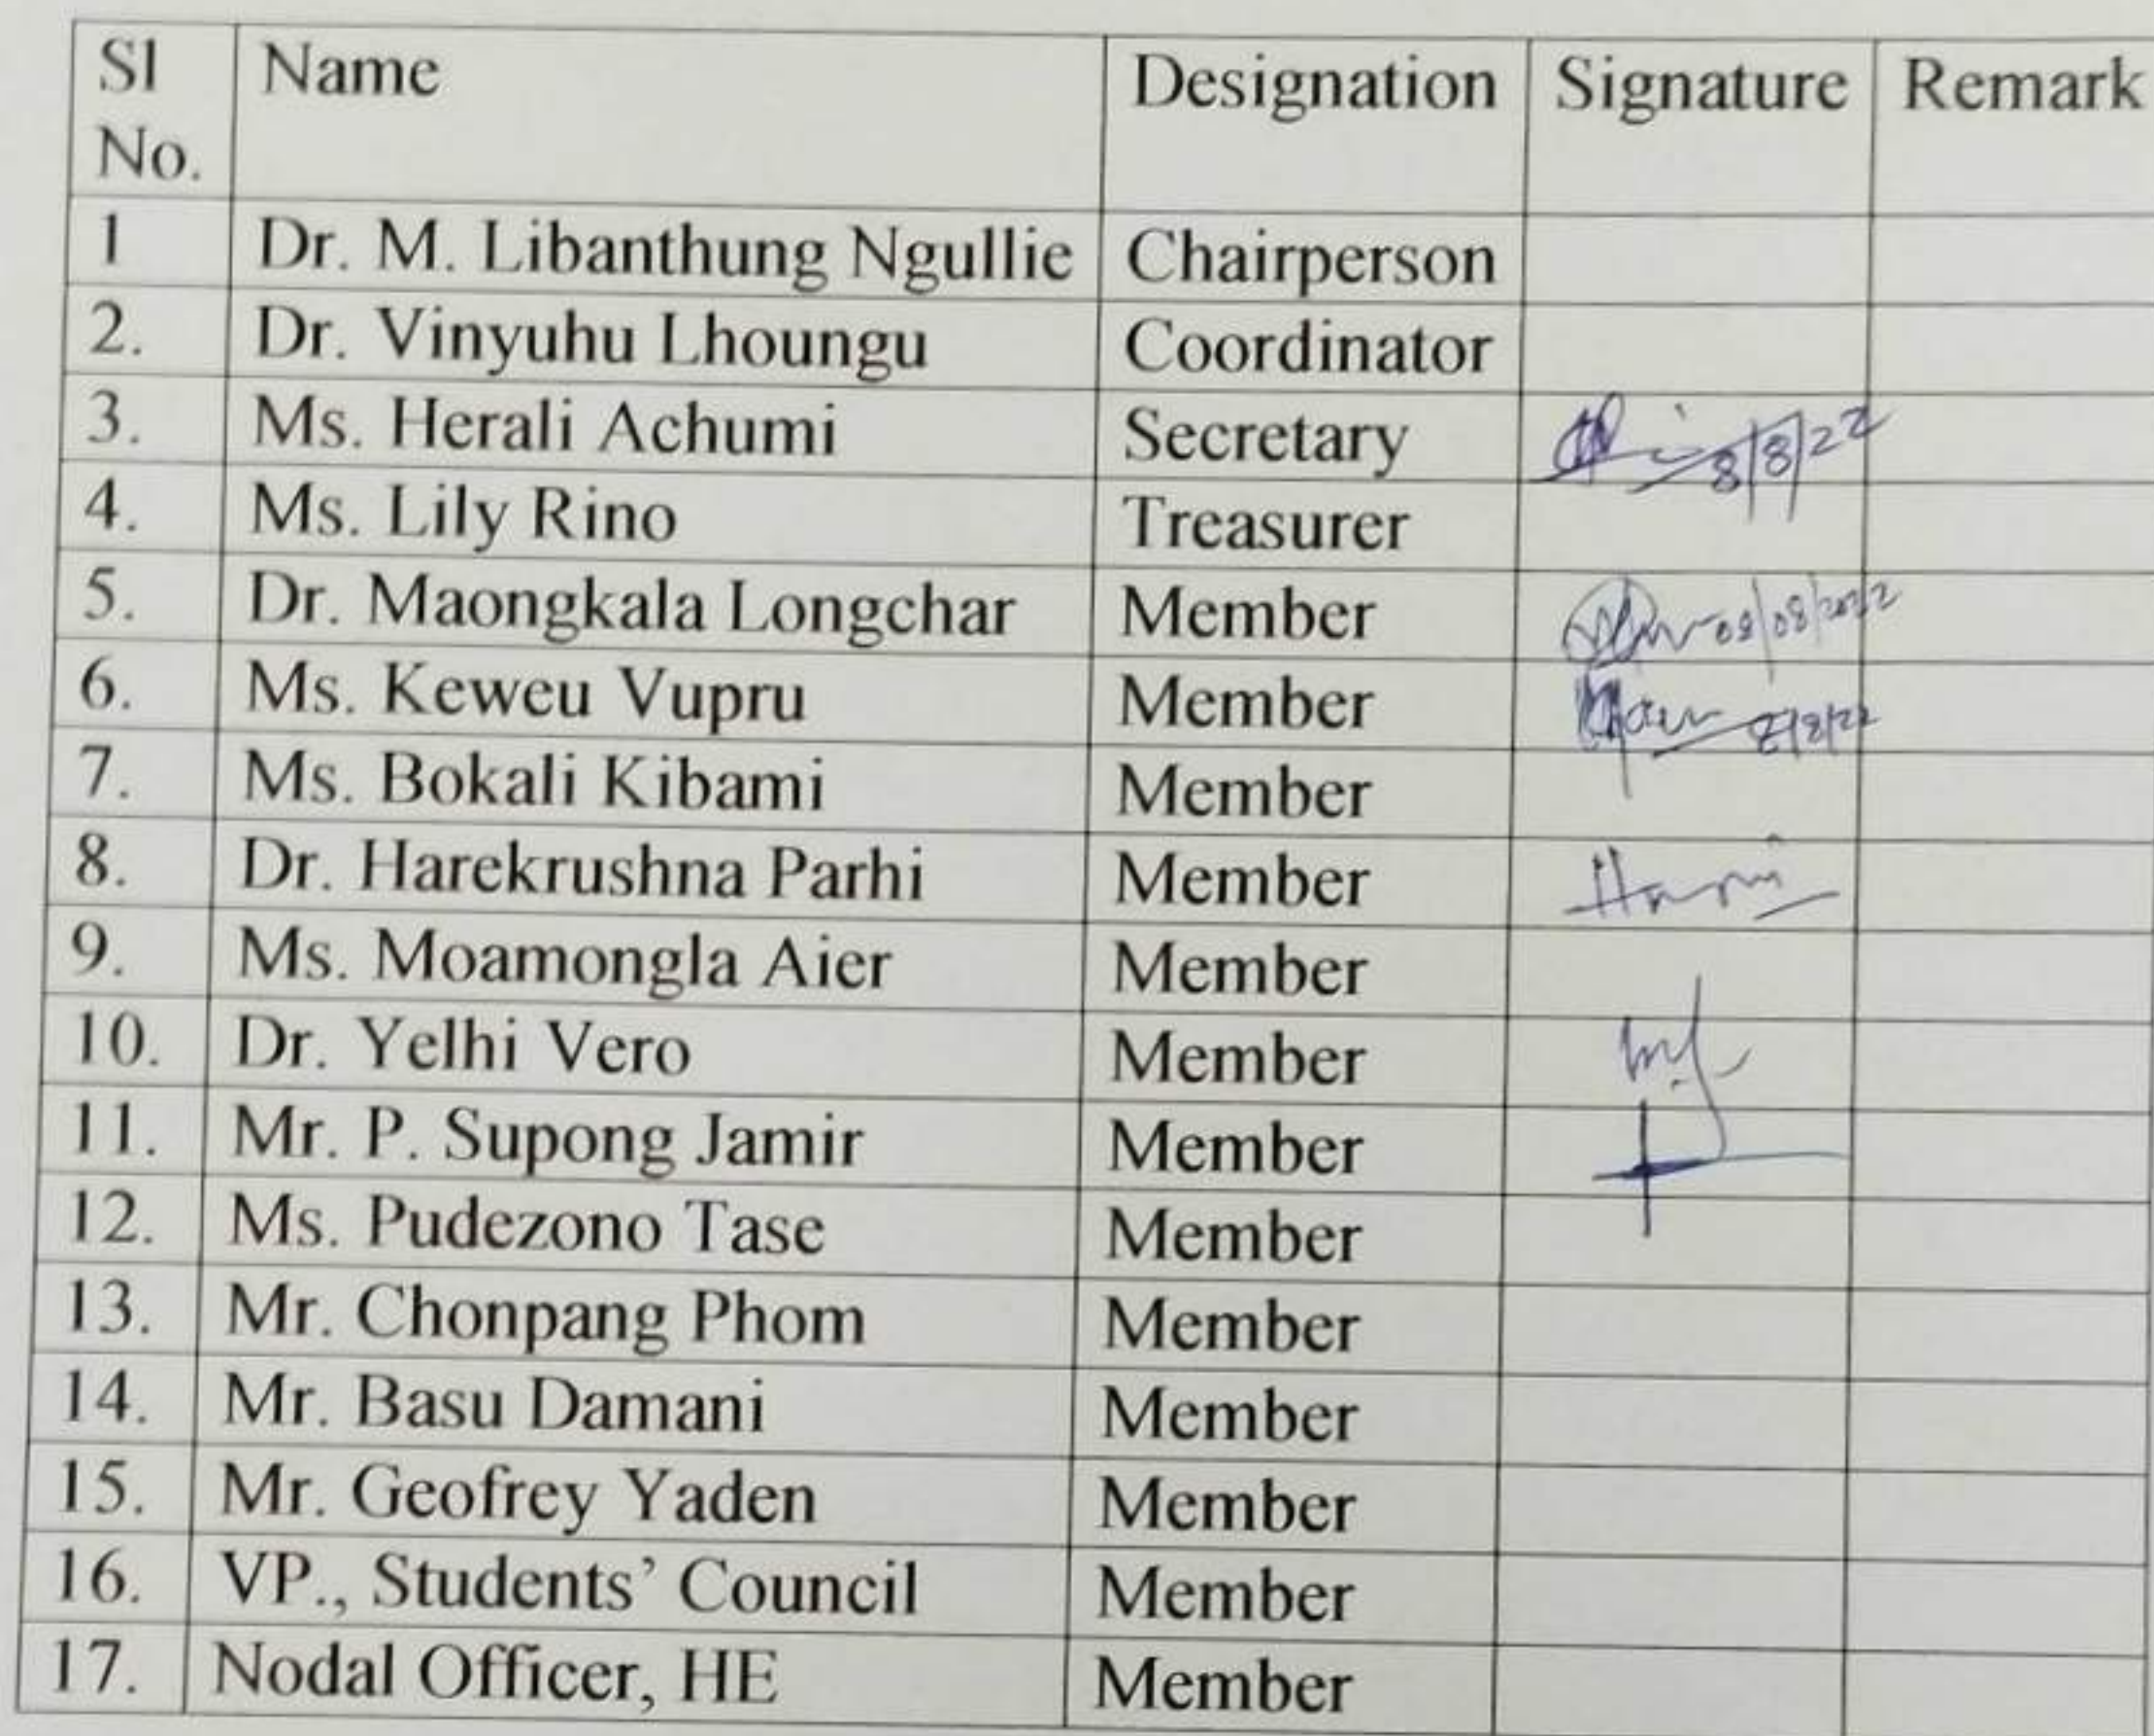 Sl No. Name Designation Signature Remark
1 Dr. M. Libanthung Ngullie Chairperson
2. Dr. Vinyuhu Lhoungu Coordinator
3. Ms. Herali Achumi Secretary 8/8/22
4. Ms. Lily Rino Treasurer
5. Dr. Maongkala Longchar Member 08/08/2022
6. Ms. Keweu Vupru Member 8/8/22
7. Ms. Bokali Kibami Member
8. Dr. Harekrushna Parhi Member
9. Ms. Moamongla Aier Member
10. Dr. Yelhi Vero Member
11. Mr. P. Supong Jamir Member
12. Ms. Pudezono Tase Member
13. Mr. Chonpang Phom Member
14. Mr. Basu Damani Member
15. Mr. Geofrey Yaden Member
16. VP., Students’ Council Member
17. Nodal Officer, HE Member